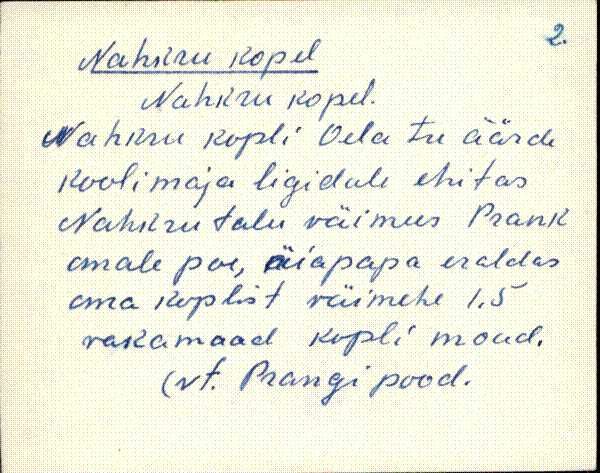 2.
Nahkru kopel
Nahkru kopel.
Nahkru kopli Oela tee äärde
koolimaja ligidale ehitas
Nahkru talu väimees Prank
omale poe, äiapapa eraldas
oma koplist väimehe 1,5
vakamaad kopli moad.
(vt. Prangi pood.